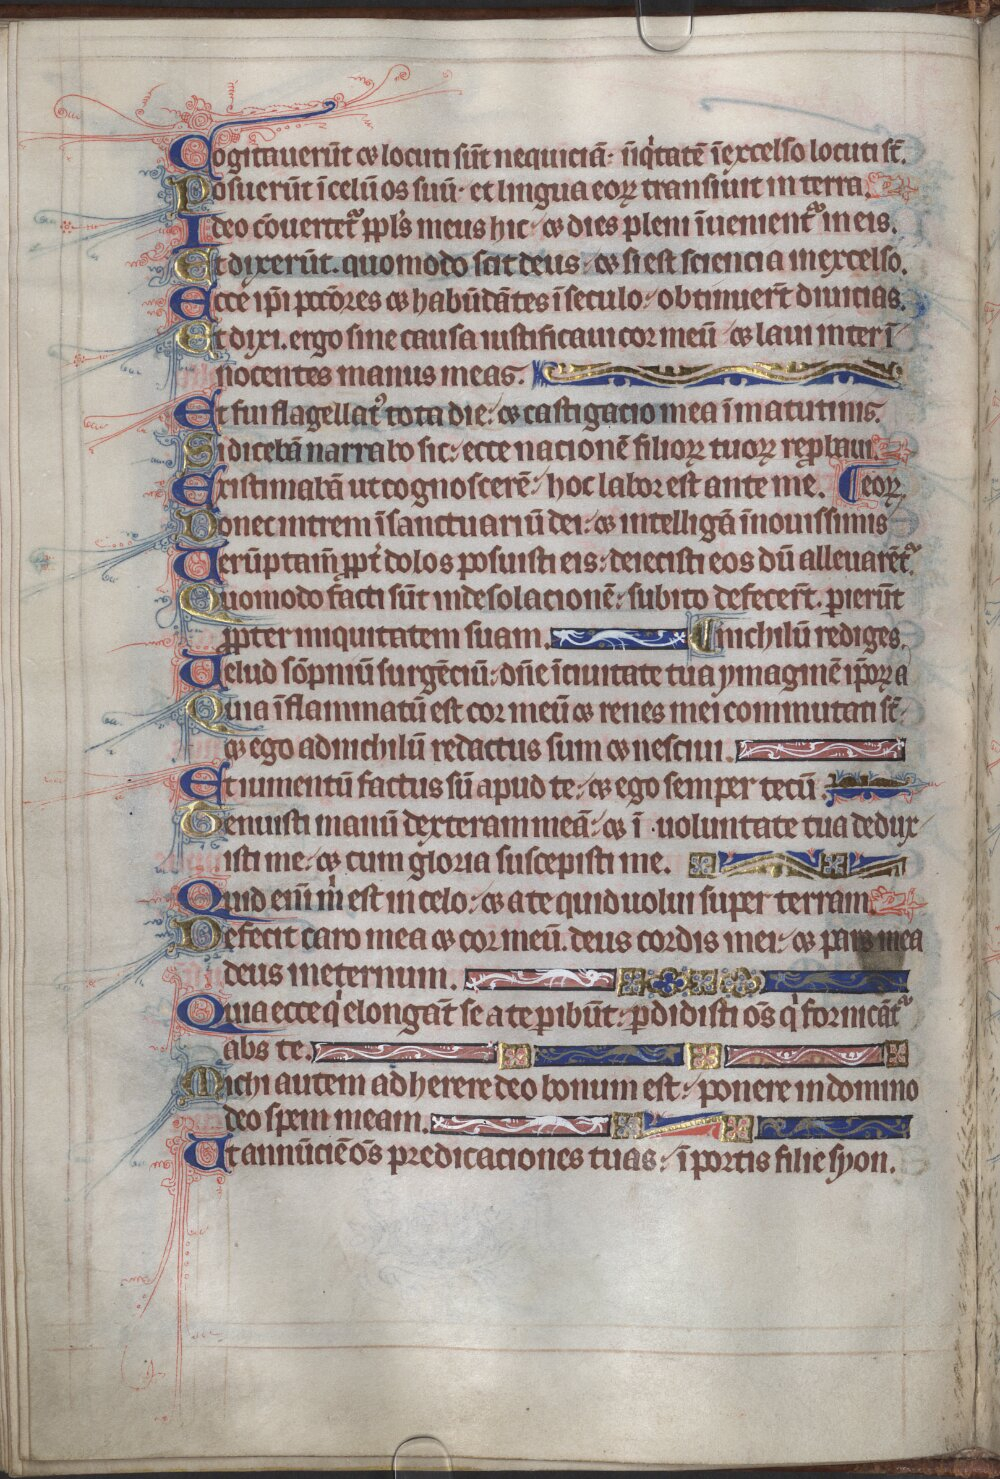 Cogitauerūt ⁊ locuti sūt nequiciā· īiq̇tatē ī excelso locuti st̄.
Posuerūt ī celū os suū· et lingua eoꝝ transiuit in terra
Ideo cōuertet᷑ ppl̄s meus hic· ⁊ dies pleni īuenient᷑ in eis.
Et dixerūt. quomodo scit deus· ⁊ si est sciencia in excelso.
Ecce ip̄i pccōres ⁊ habūdātes ī seculo· obtinuer̄t diuicias.
Et dixi. ergo sine causa iustificaui cor meū ⁊ laui inter ī
nocentes manus meas.
Et fui flagellat᷒ tota die· ⁊ castigacio mea ī matutinis.
Si dicebā narrabo sic· ecce nacionē filioꝝ tuoꝝ rep̱baui
Existimabā ut cognoscerē· hoc labor est ante me. ¶ eoꝝ.
Donec intrem ī sanctuariū dei· ⁊ intelligā ī nouissimis
Uerūptam̄ ꝓpt̄ dolos posuisti eis· deiecisti eos dū alleuarēt᷑
Quomodo facti sūt in desolacionē· subito defecer̄t. ꝑierūt
ꝓpter iniquitatem suam. ¶ nichilū rediges.
Uelud sōpniū surgēciū· dn̄e ī ciuitate tua ymaginē ip̄oꝝ a
Quia īflammatū est cor meū ⁊ renes mei commutati st̄·
⁊ ego ad nichilū redactus sum ⁊ nesciui.
Et iumentū factus sū apud te· ⁊ ego semper tecū.
Tenuisti manū dexteram meā· ⁊ ī uoluntate tua dedux
isti me· ⁊ cum gloria suscepisti me.
Quid eni̅ m̊ est in celo· ⁊ a te quid uolui super terram
Defecit caro mea ⁊ cor meū. deus cordis mei· ⁊ pars mea
deus in eternum.
Quia ecce q̇ elongāt se a te ꝑibūt· ꝑdidisti oēs q̇ fornicāt᷑
abs te.
Michi autem adherere deo bonum est· ponere in domino
deo spem meam.
Ut annūciē oēs predicaciones tuas· ī portis filie syon.